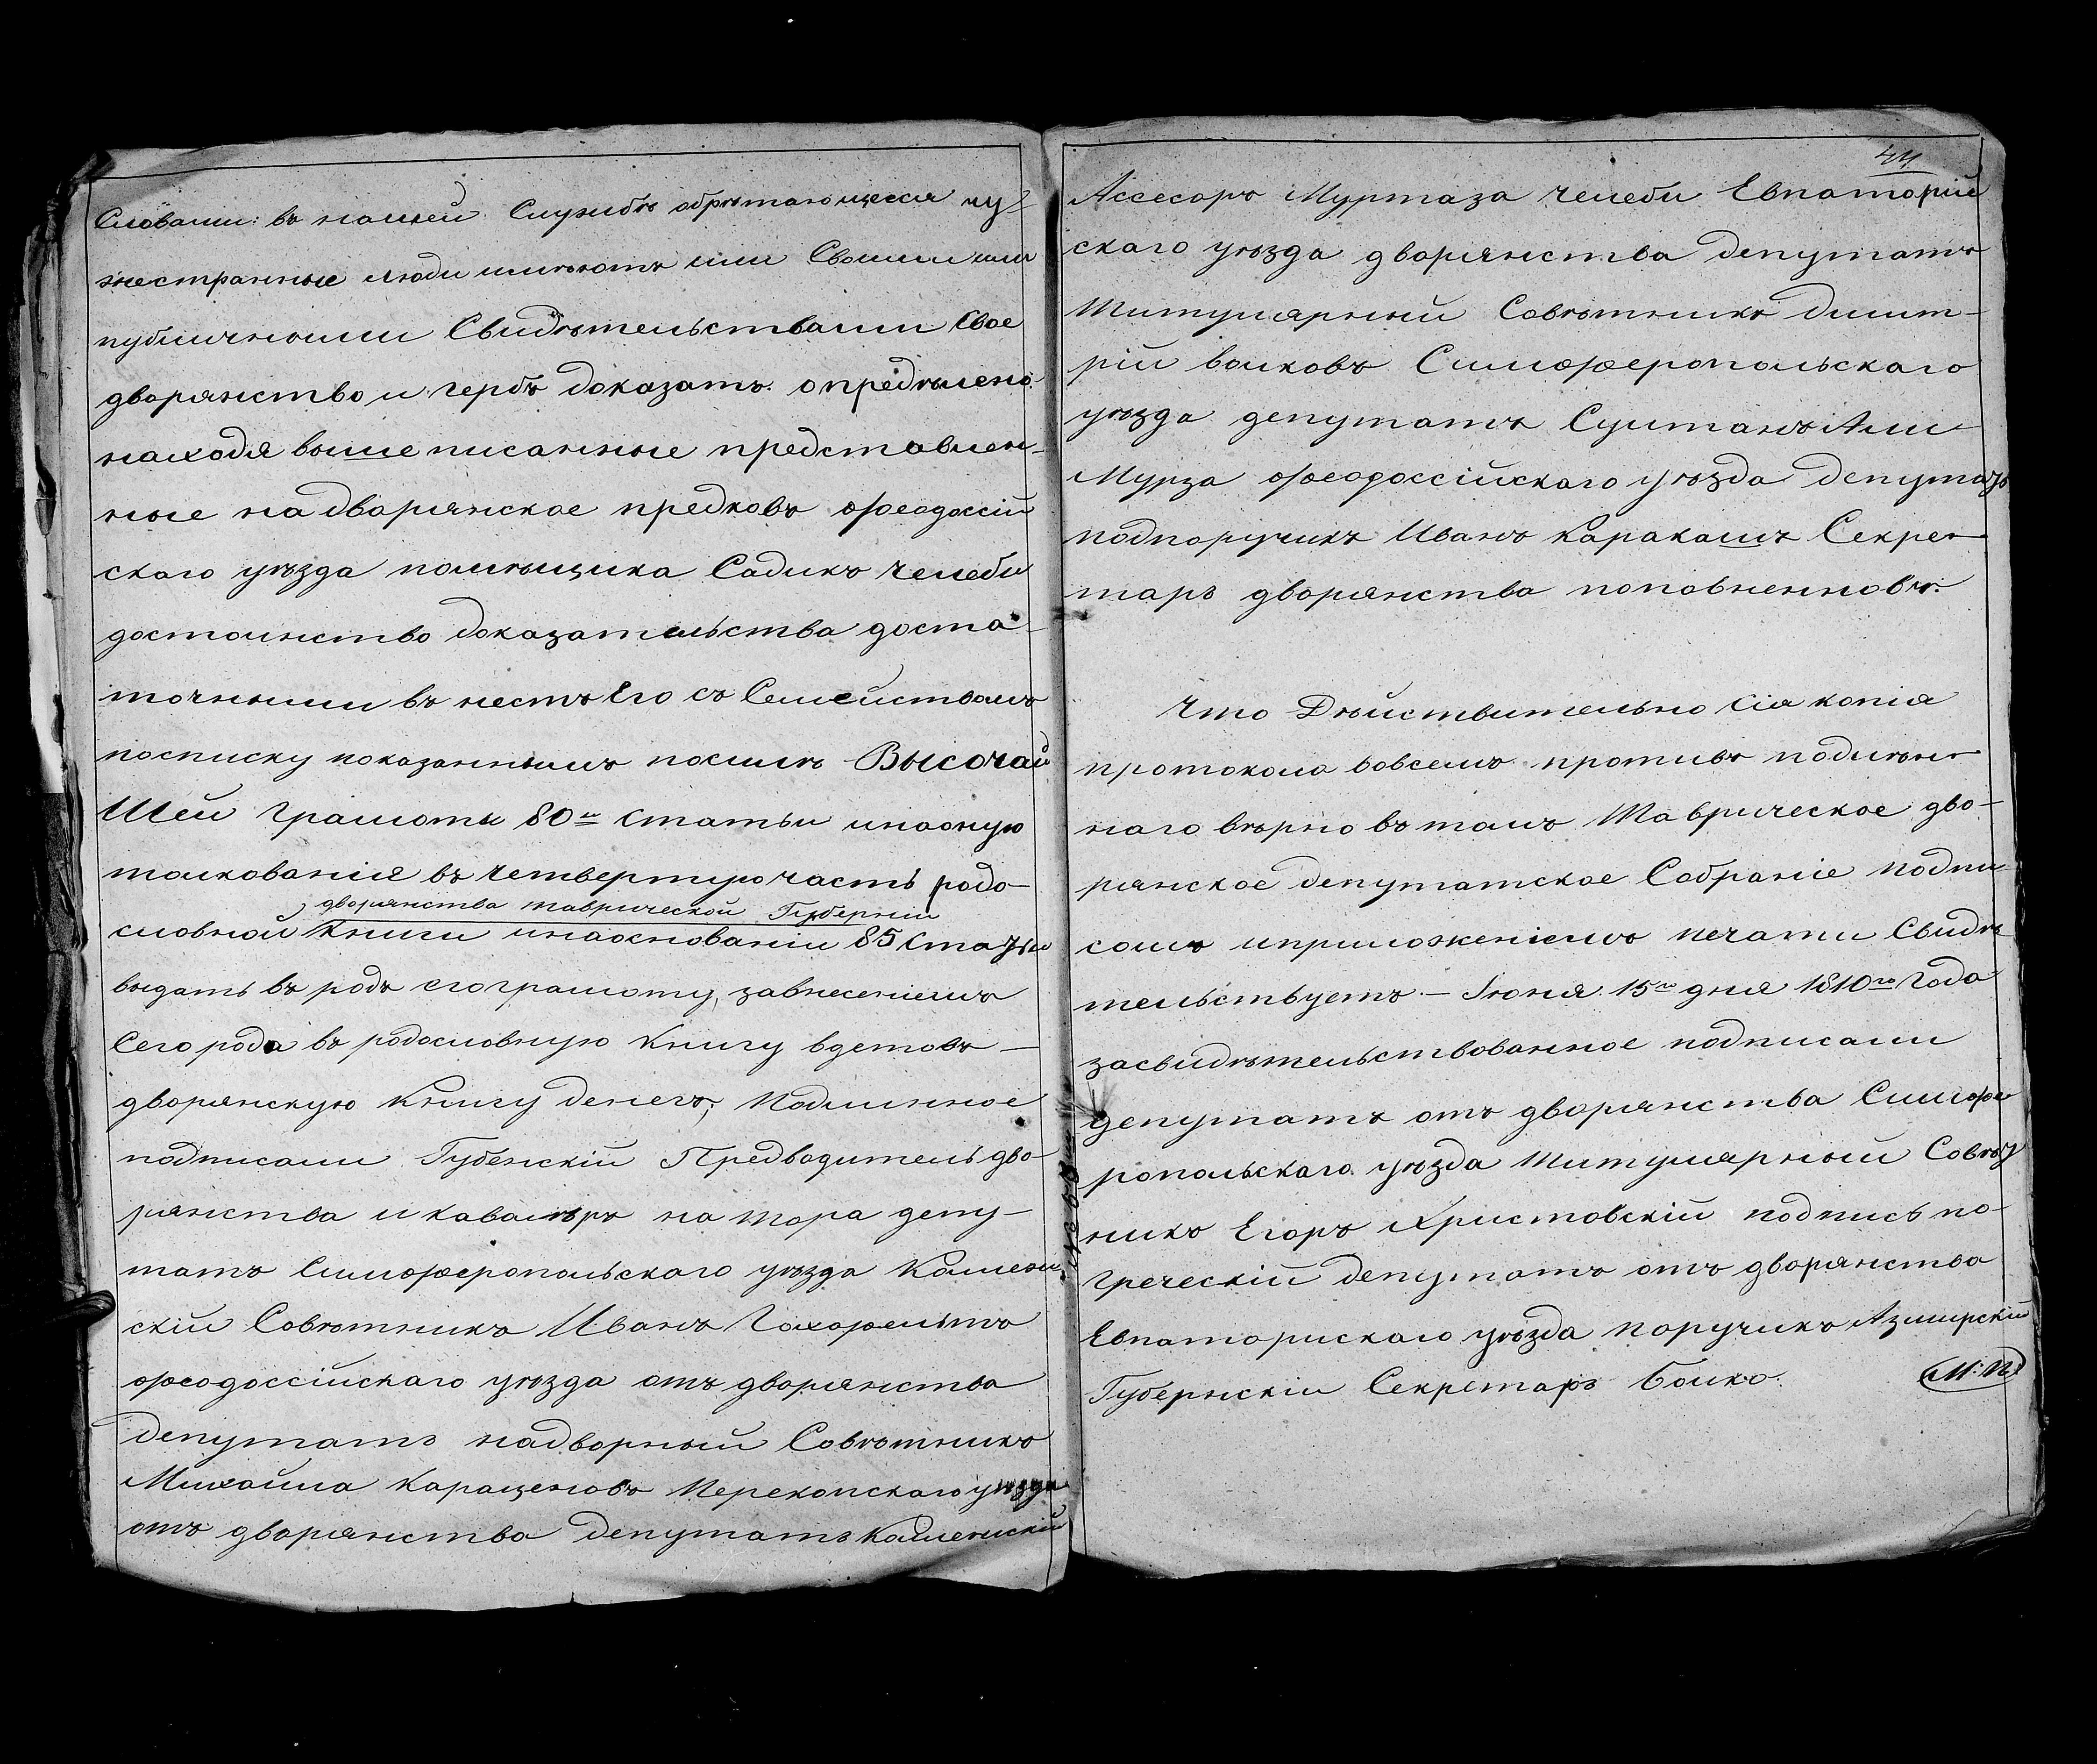 Словами: въ нашей Службѣ обрѣтающеся чу-
жестранные люди имѣютъ или Своими или
публичными Свидѣтельствами Свое
дворянство и гербъ доказать. опредѣлено:
находя выше писанные представлен-
ные на дворянское предковъ феодоссій
скаго уѣзда помѣщика Садикъ челеби
достоинство доказательства доста-
точными внесть Его съ Семействомъ
посписку показаннымъ посилѣ Высочай
Шей грамоты 80й Статьи инаоную
толкованія въ четвертую часть родо-
дворянства таврической Губерніи
словной Книги инаоснованіи 85 Статьи
выдать въ родъ его грамоту, завнесеніемъ
Сего рода въ родословную Книгу вдетовъ —
дворянскую Книгу денегъ, Подлинное
подписали Губенскій Предводитель дво-
рянства и кавалѣръ на тара депу-
татъ Симоферопольскаго уѣзда Колеж
скій Совѣтникъ Иванъ Гохфельтъ
феодоссійскаго уѣзда отъ дворянства
депутатъ надворный Совѣтникъ
Михайла Караценовъ Перекопскаго уѣзда
отъ дворянства депутатъ Колежскій
44
Ассесоръ Муртаза челеби Евпаторій
скаго уѣзда дворянства депутатъ
Титулярный Совѣтникъ Димит-
рій волковъ Симоферопольскаго
уѣзда депутатъ Султанъ Али
Мурза феодоссійскаго уѣзда депутатъ
подпоручикъ Иванъ Каракашъ Секре-
тарь дворянства
Что Дѣйствительно сія копія
протокола вовсемъ противъ подлин-
наго вѣрно въ томъ Таврическое дво-
рянское депутатское Собраніе подпи-
сомъ иприложеніемъ печати Свидѣ-
тельствуетъ — Іюня 15го дня 1810го Года
засвидѣтельствованное подписали
депутатъ отъ дворянства Симфе
ропольскаго уѣзда титулярный Совѣт
никъ Егоръ Христовскій подпись по-
гречески депутатъ отъ дворянства
Евпаторискаго уѣзда поручикъ Азмирскій
Губернскій Секретарь Бойко. М: П: